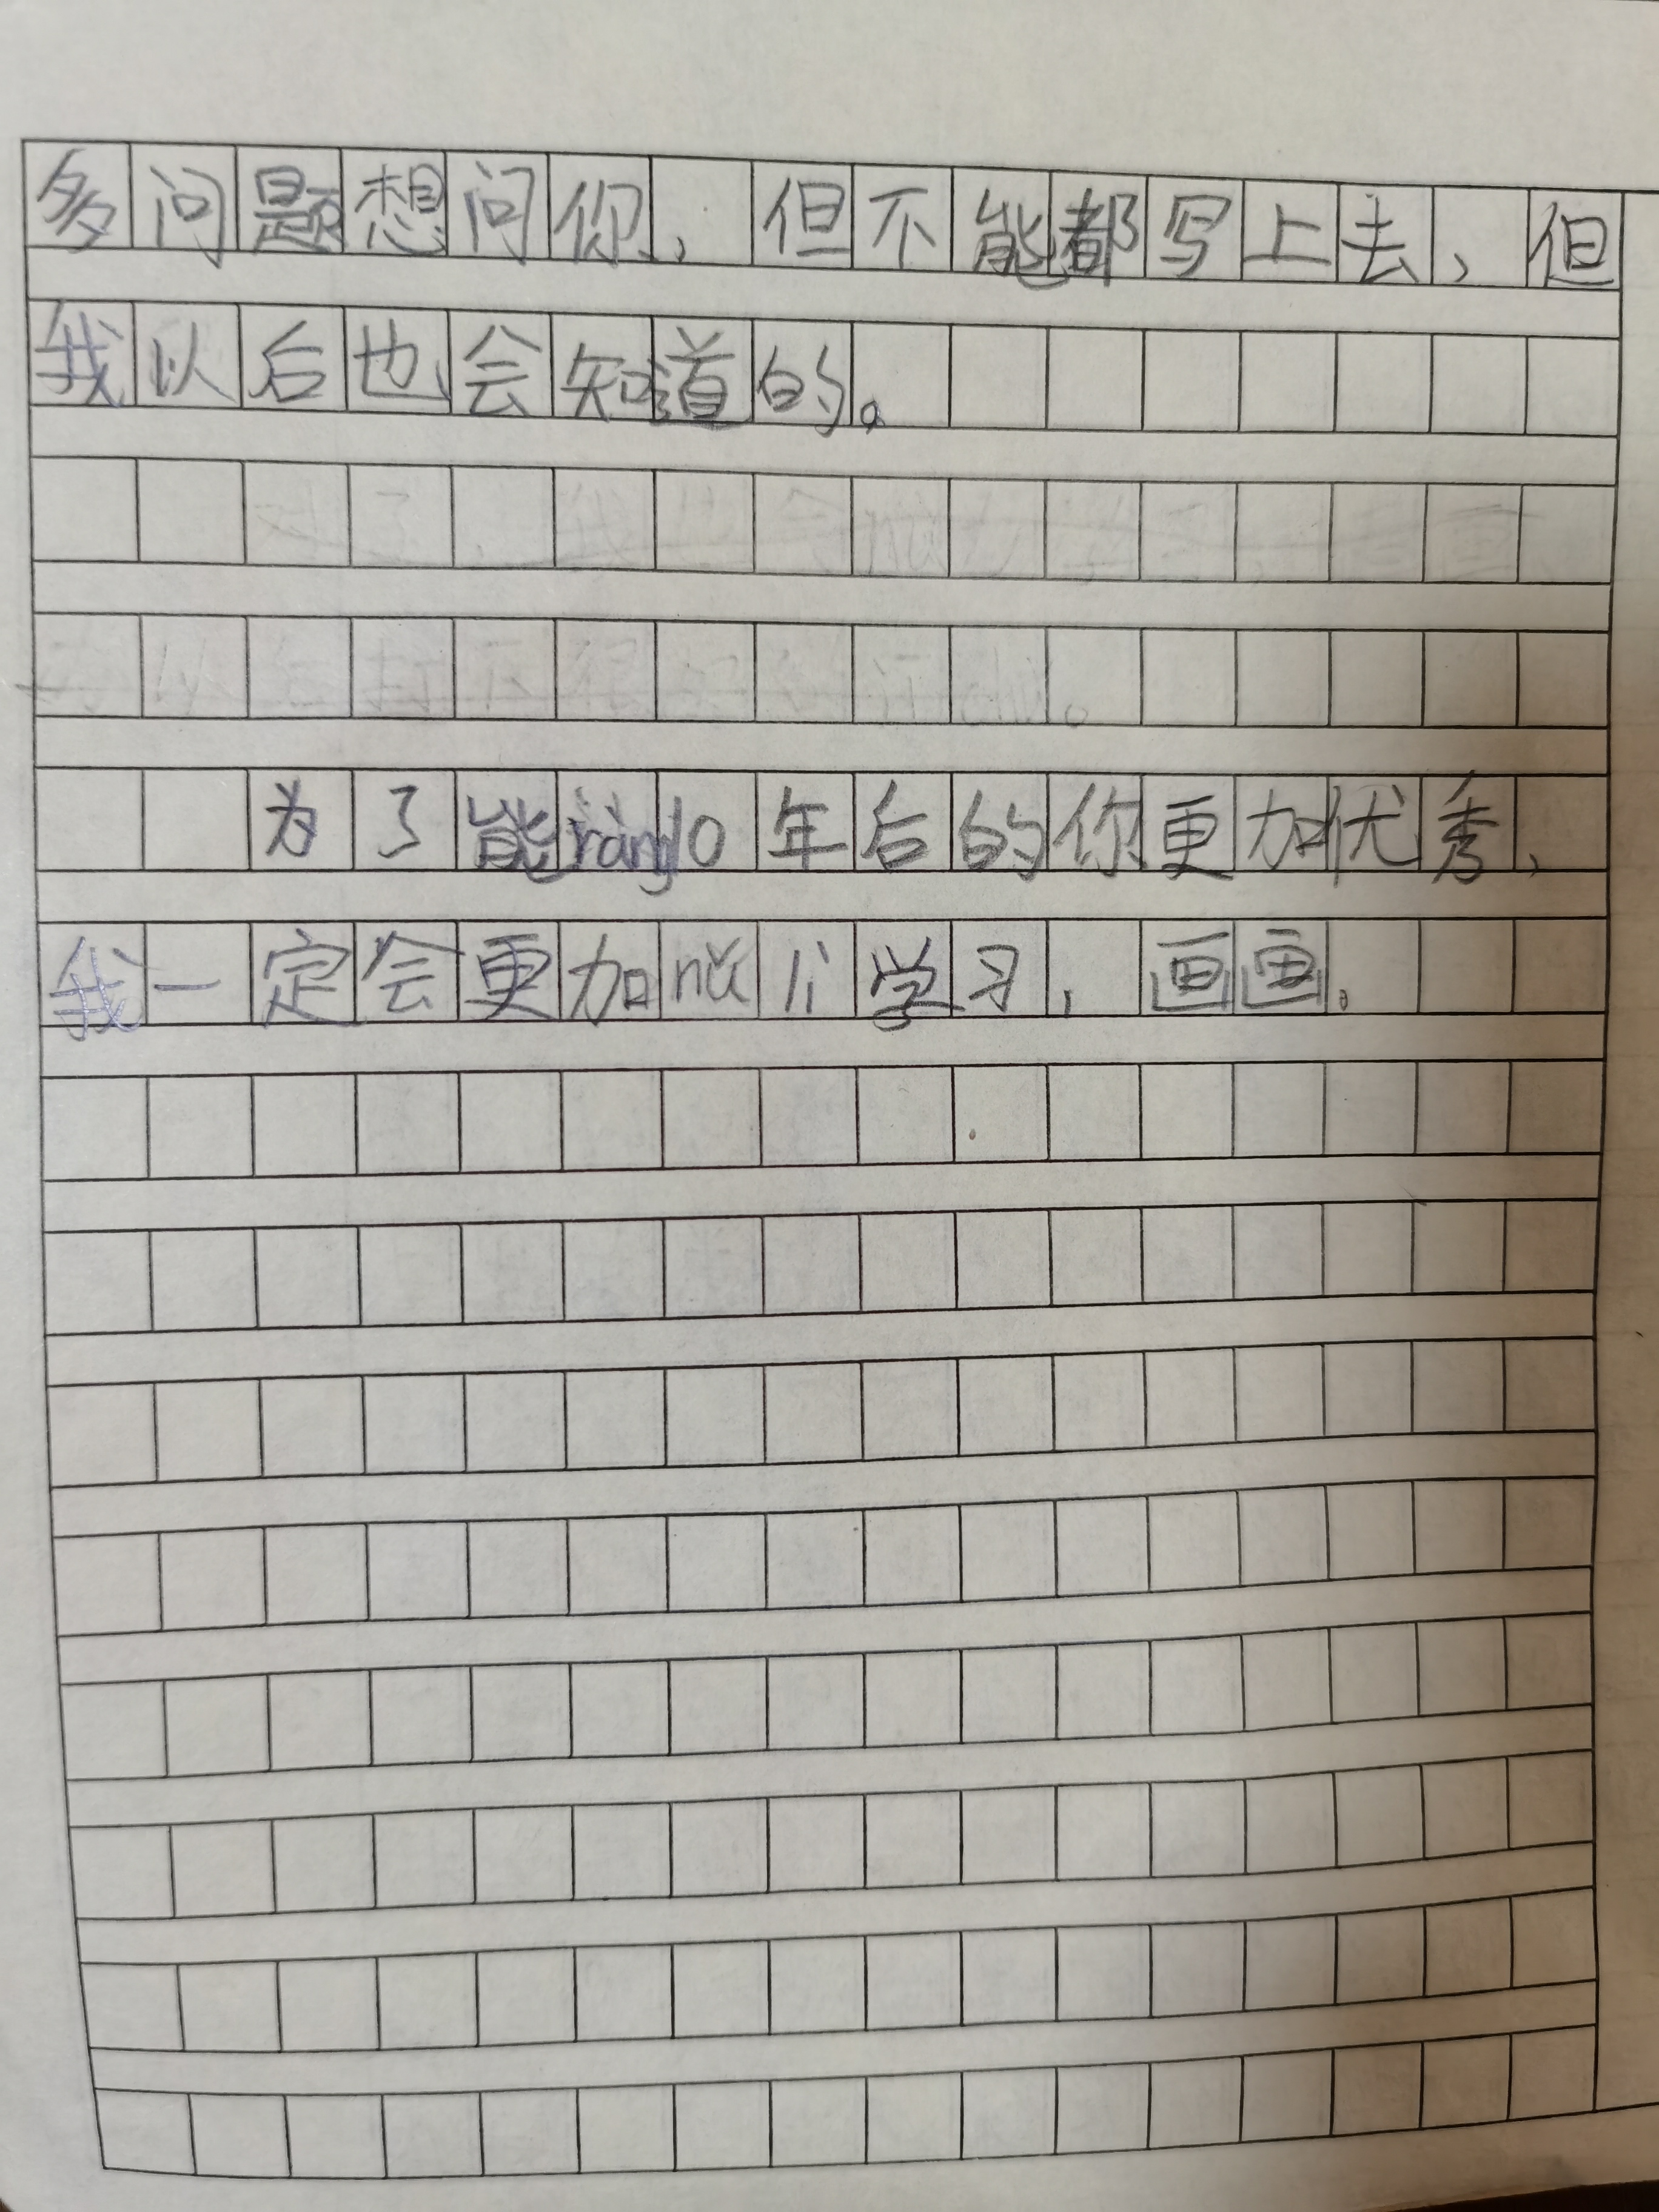 多问题想问你，但不能都写上去，但
我以后也会知道的。
为了能ràng10年后的你更加优秀，
我一定会更加nǔ lì学习，画画。